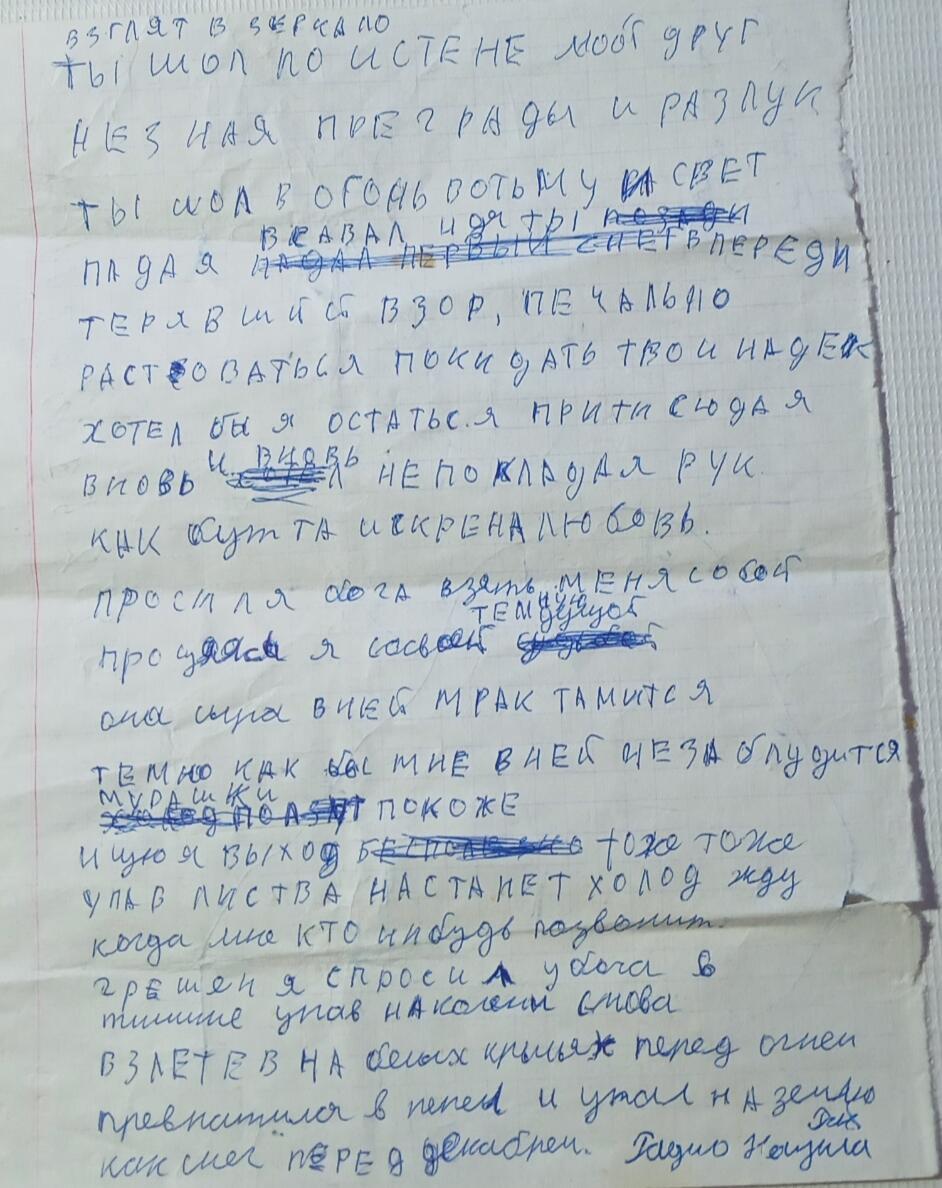 ВЗГЛЯТ В ЗЕРКАЛО
ТЫ ШОЛ ПО ИСТЕНЕ МОЙ ДРУГ
НЕЗНАЯ ПРЕГРАДЫ И РАЗЛУК
ТЫ ШОЛ В ОГОНЬ ВОТЬМУ СВЕТ
ВСАВАЛ ИДЯ ТЫ
ПАДАЯ ВПЕРЕДИ
ТЕРЯВШИЙ ВЗОР, ПЕЧАЛЬНО
РАСТОВАТЬСЯ ПОКИДАТЬ ТВОИ НАДЕЖ
ХОТЕЛ БЫ Я ОСТАТЬСЯ ПРИТИ СЮДА Я
ВНОВЬ И ВНОВЬ НЕПОКЛАДАЯ РУК
КАК БУТТА ИСКРЕНА ЛЮБОВЬ.
ПРОСИЛ Я БОГА ВЗЯТЬ МЕНЯ СОБОЙ
ТЕМНИЦОЙ
ПРОЩАЯСЬ Я СОСВОЕЙ
ОНА СЫРА ВНЕЙ МРАК ТАМИТСЯ
ТЕМНО КАК БЫ МНЕ ВНЕЙ НЕЗАБЛУДИТСЯ
МУРАШКИ
ПОКОЖЕ
ИЩЮ Я ВЫХОД ТОЖЕ ТОЖЕ
УПАВ ЛИСТВА НАСТАНЕТ ХОЛОД ЖДУ
когда мне КТО нибудь позвонит.
ГРЕШЕН Я СПРОСИЛ у бога в
тишине упав НА колени снова
ВЗЛЕТЕВ НА белых крыльях перед огнем
превратился в пепел и упал НА землю
как снег ПЕРЕД декабрем. Гадио